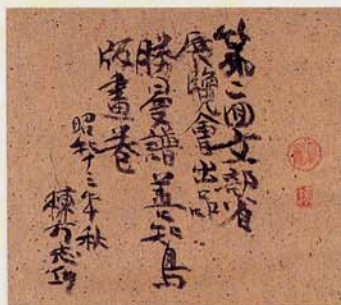 第二回文部省
展覧會出品
勝曼譜善知鳥
版畫巻
昭和十三年秋
棟方志功